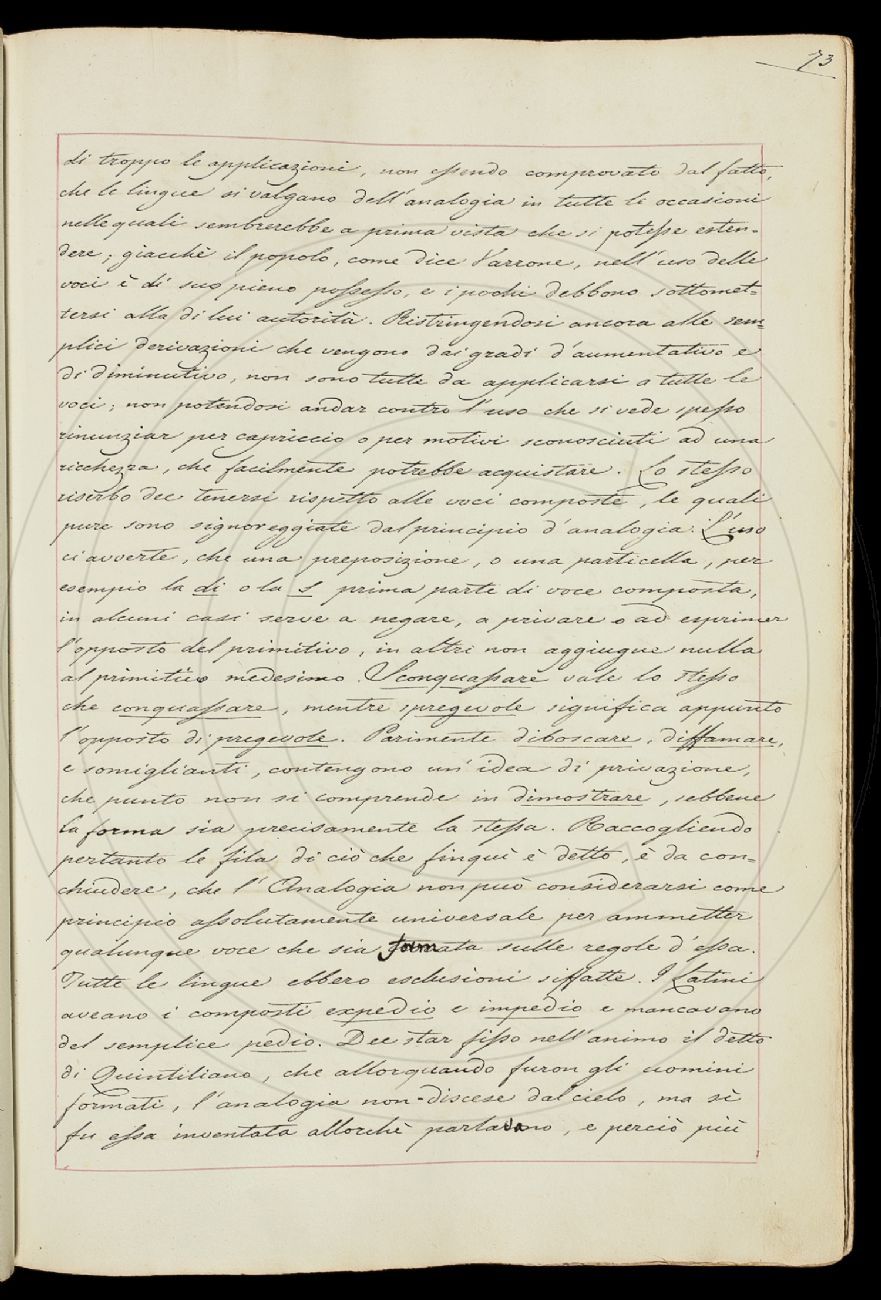 73
di troppo le applicazioni, non essendo comprovato dal fatto,
che le lingue si valgano dell'analogia in tutte le occasioni
nelle quali sembrerebbe a prima vista che si potesse esten-
dere; giacchè il popolo, come dice Varrone, nell'uso delle
voci è di suo pieno possesso, e i pochi debbono sottomet-
tersi alla di lui autorità. Ristringendosi ancora alle sem-
plici derivazioni che vengono dai gradi d'aumentativo e
di diminutivo, non sono tutte da applicarsi a tutte le
voci; non potendosi andar contro l'uso che si vede spesso
rinunziar per capriccio o per motivi sconosciuti ad una
ricchezza, che facilmente potrebbe acquistare. Lo stesso
riserbo dee tenersi rispetto alle voci composte, le quali
pure sono signoreggiate dal principio d'analogia. L'uso
ci avverte, che una preposizione, o una particella, per
esempio la di o la s prima parte di voce composta,
in alcuni casi serve a negare, a privare o ad esprimer
l'opposto del primitivo, in altri non aggiugne nulla
al primitivo medesimo. Sconquassare vale lo stesso
che conquassare, mentre spregevole significa appunto
l'opposto di pregevole. Parimente diboscare, diffamare,
e somiglianti, contengono un'idea di privazione,
che punto non si comprende in dimostrare, sebbene
la forma sia precisamente la stessa. Raccogliendo
pertanto le fila di ciò che finquì è detto, è da con-
chiudere, che l'Analogia non può considerarsi come
principio assolutamente universale per ammetter
qualunque voce che sia formata sulle regole d'essa.
Tutte le lingue ebbero esclusioni siffatte. I Latini
aveano i composti expedio e impedio e mancavano
del semplice pedio. Dee star fisso nell'animo il detto
di Quintiliano, che allorquando furon gli uomini
formati, l'analogia non discese dal cielo, ma sì
fu essa inventata allorchè parlavano, e perciò più